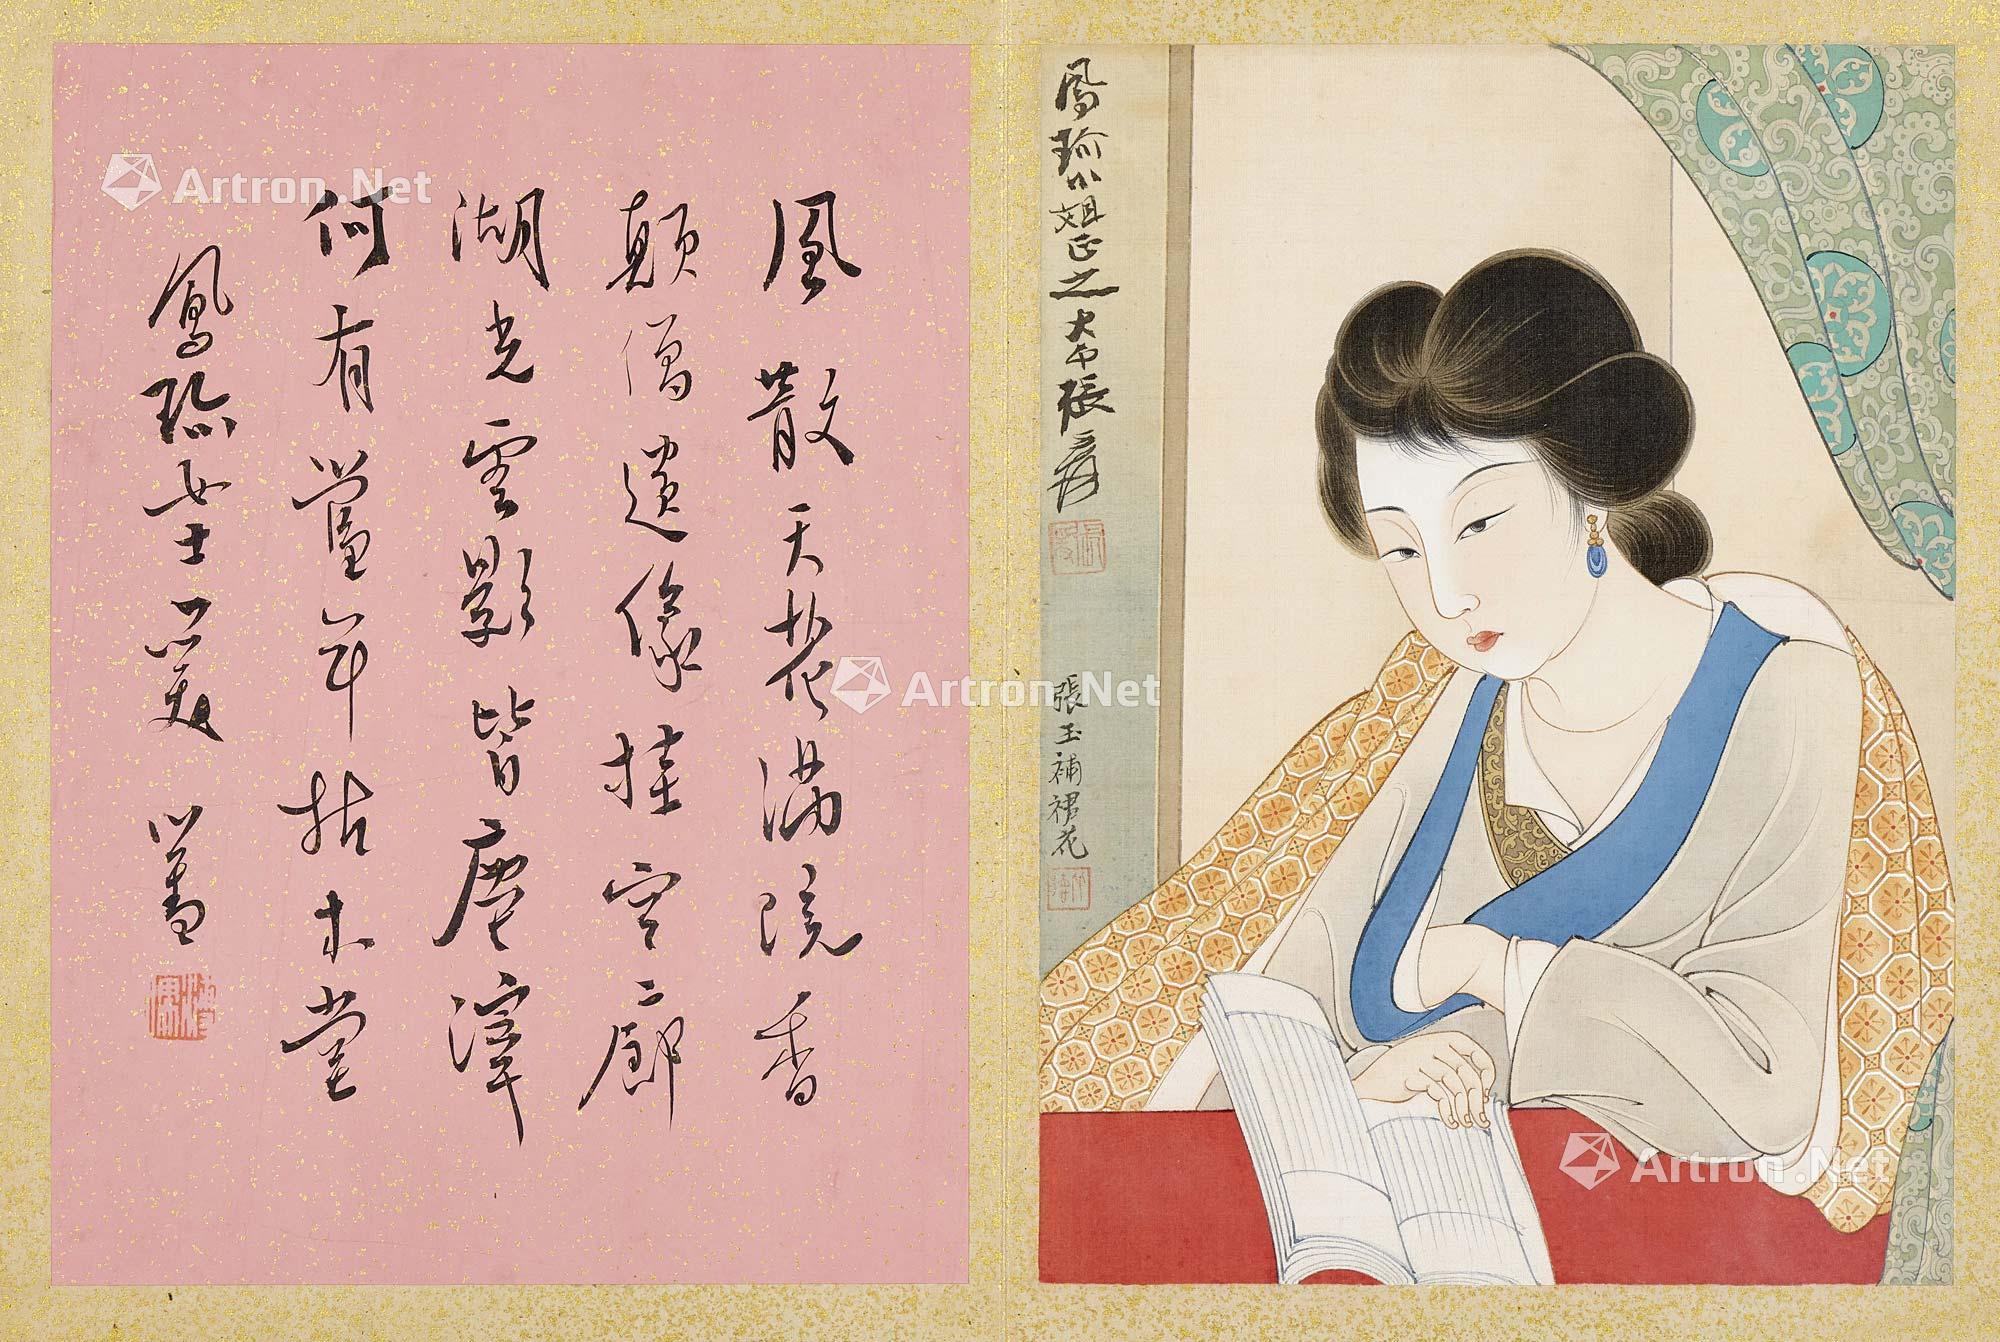 鳳珍小姐正之 大千張爰
張玉補裙花
風散天花滿院香
顛僧遺像挂空廊
湖光雲影皆塵滓
何有當年枯木堂
鳳珍女士 心畬
Artron.Net
Artron.Net
Artron.Net